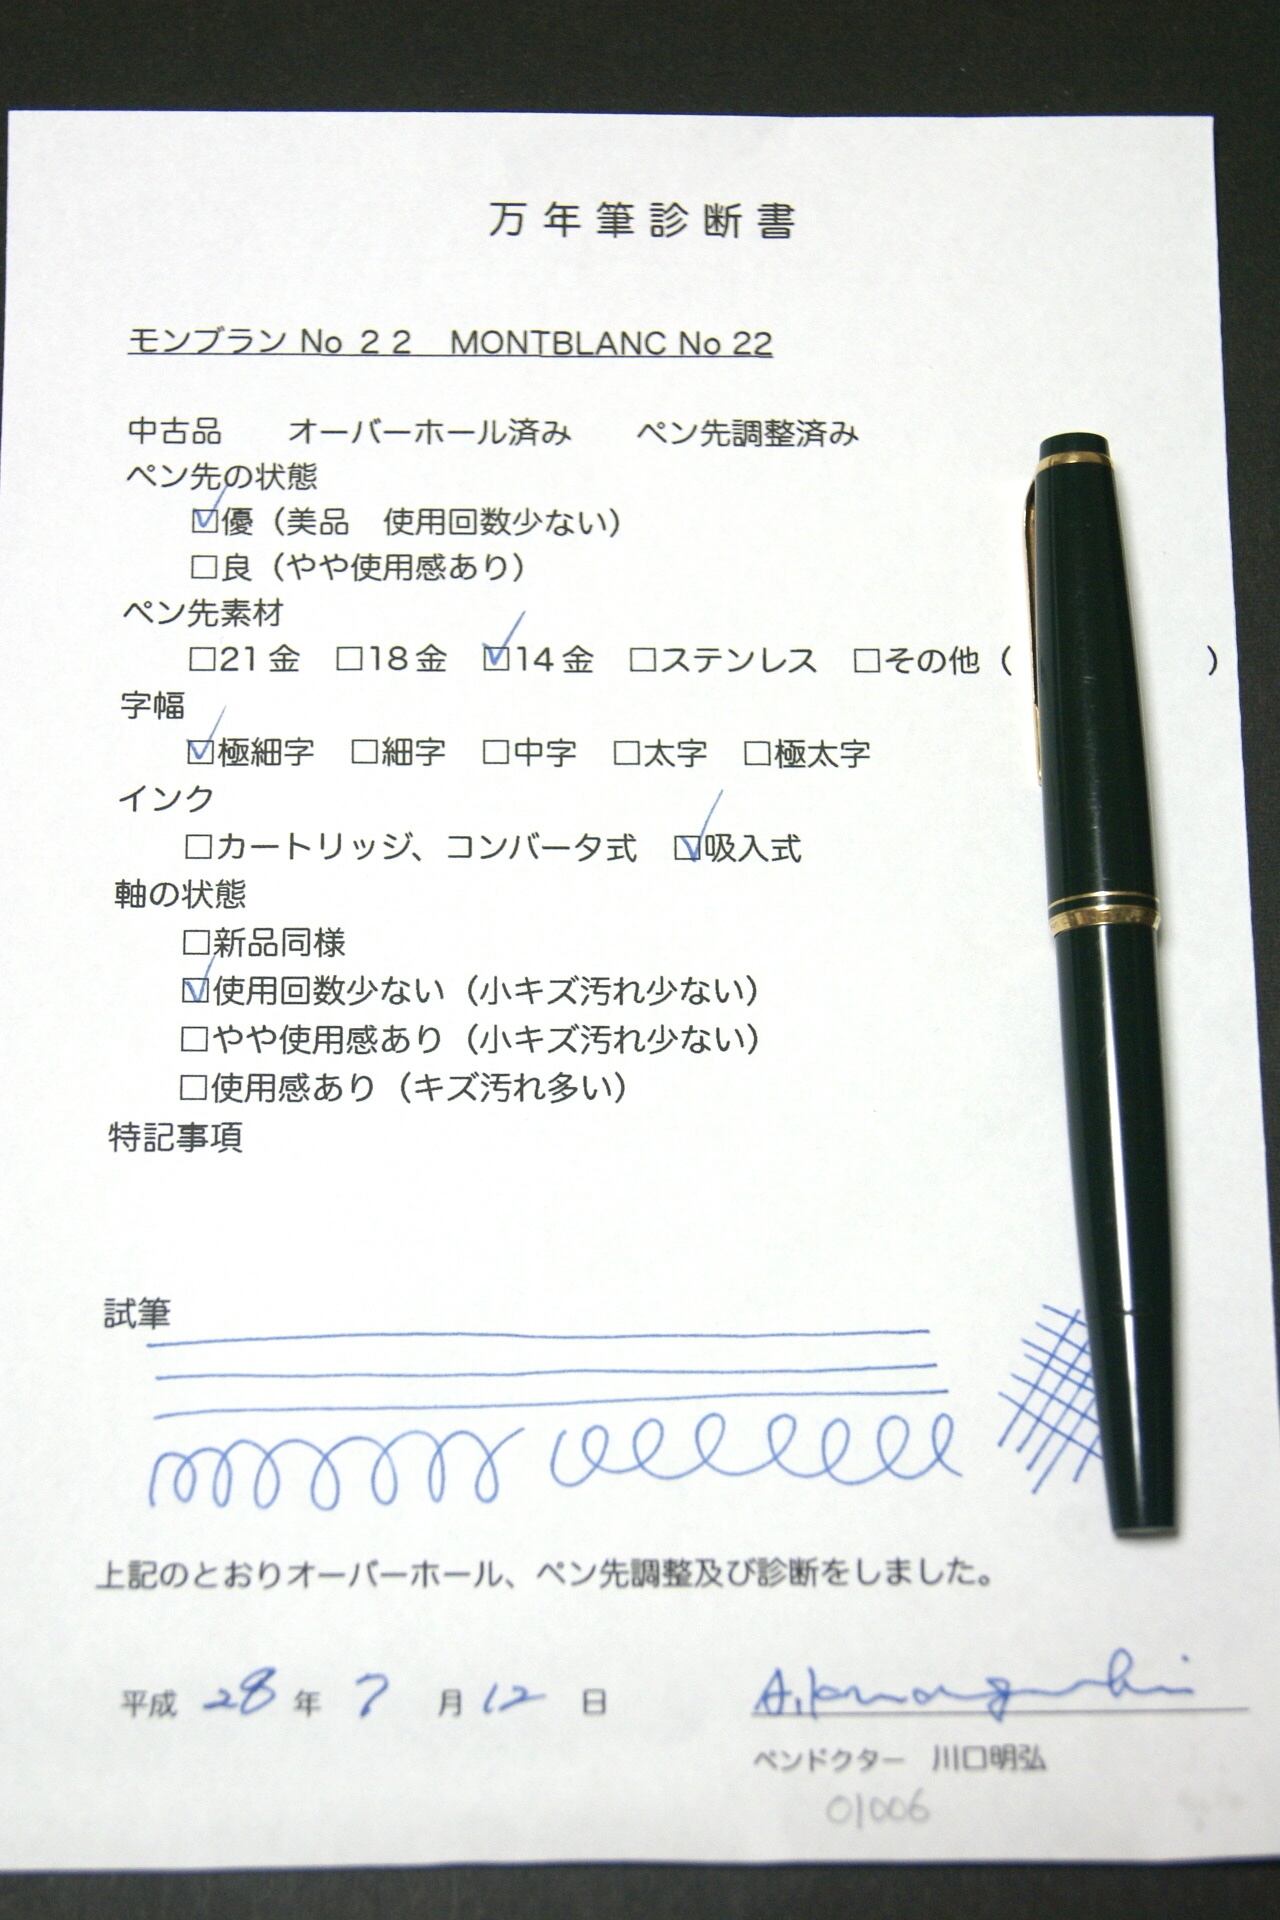 万年筆診断書
モンブラン No 22　MONTBLANC No 22
中古品　オーバーホール済み　ペン先調整済み
ペン先の状態
☑優（美品　使用回数少ない）
□良（やや使用感あり）
ペン先素材
□21金　□18金　☑14金　□ステンレス　□その他（　　　）
字幅
☑極細字　□細字　□中字　□太字　□極太字
インク
□カートリッジ、コンバータ式　☑吸入式
軸の状態
□新品同様
☑使用回数少ない（小キズ汚れ少ない）
□やや使用感あり（小キズ汚れ少ない）
□使用感あり（キズ汚れ多い）
特記事項
試筆
上記のとおりオーバーホール、ペン先調整及び診断をしました。
平成 28 年 7 月 12 日
ペンドクター　川口明弘
01006